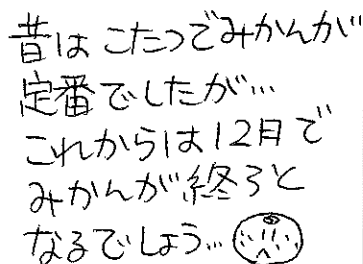 昔はこたつでみかんが
定番でしたが…
これからは12月で
みかんが終ると
なるでしょう…